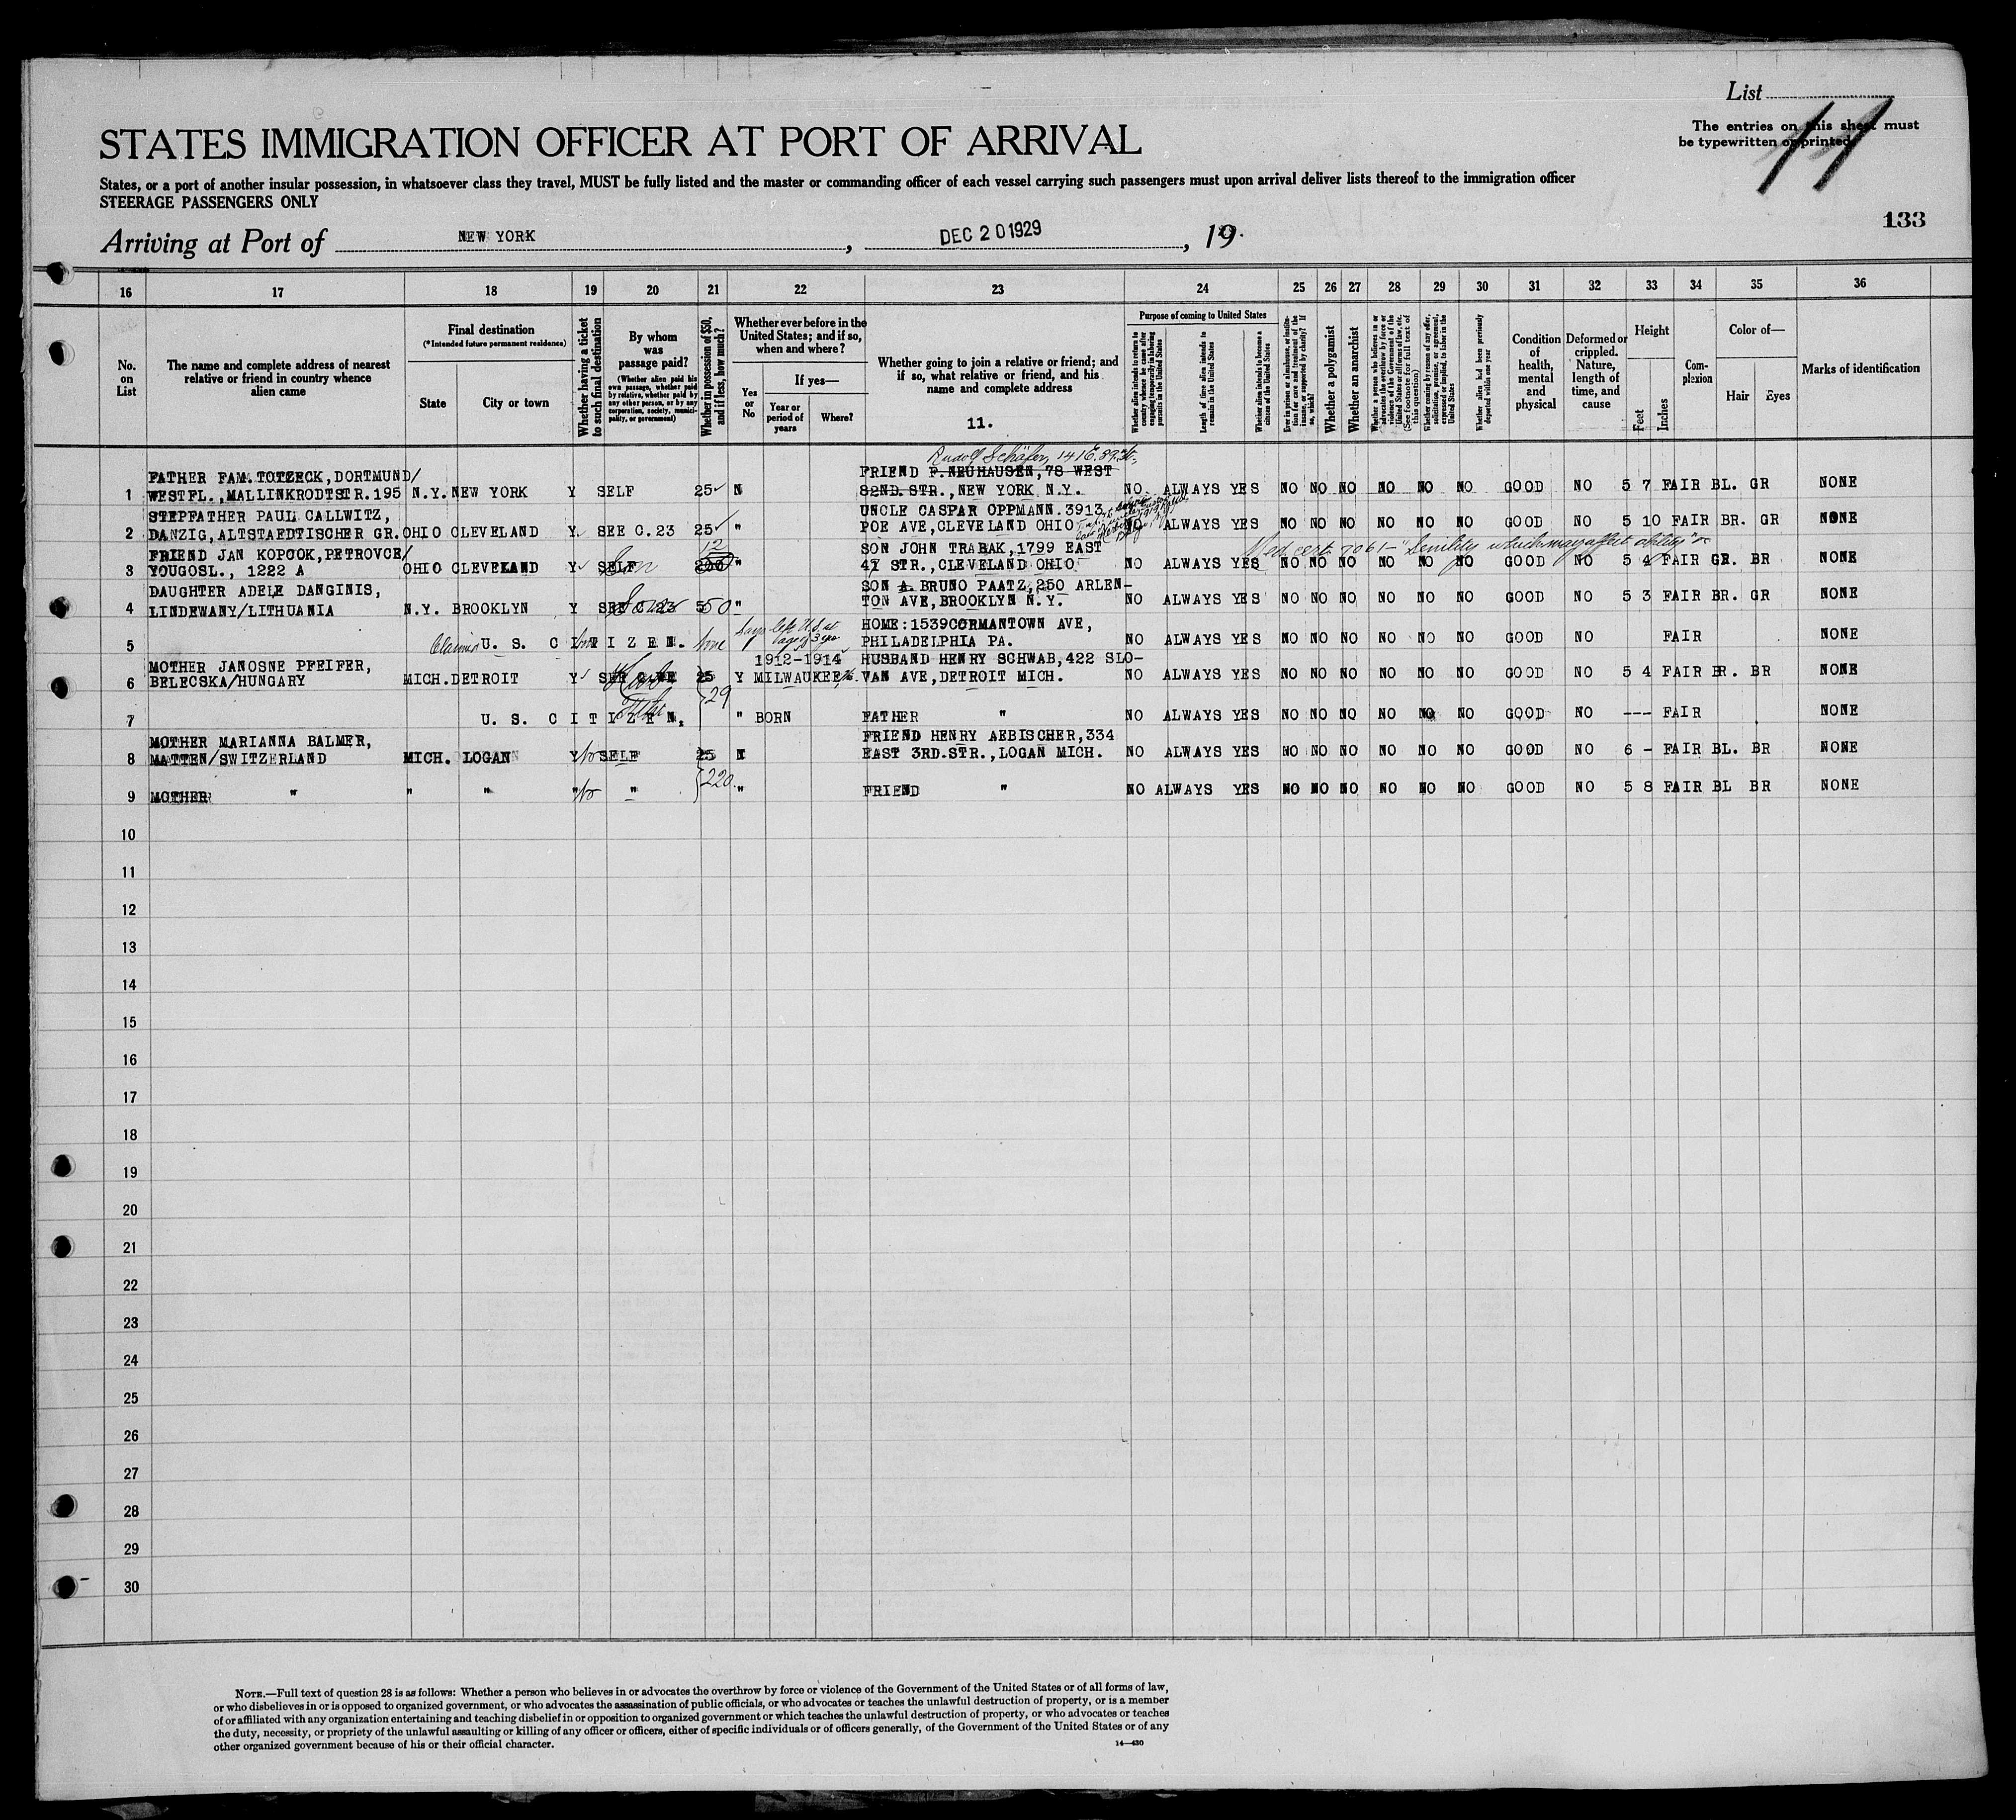 List
11
The entries on this sheet must
be typewritten or printed
STATES IMMIGRATION OFFICER AT PORT OF ARRIVAL
States, or a port of another insular possession, in whatsoever class they travel, MUST be fully listed and the master or commanding officer of each vessel carrying such passengers must upon arrival deliver lists thereof to the immigration officer
STEERAGE PASSENGERS ONLY
133
Arriving at Port of NEW YORK, DEC 20 1929, 19
16 17 18 19 20 21 22 23 24 25 26 27 28 29 30 31 32 33 34 35 36
No.
on
List
The name and complete address of nearest
relative or friend in country whence
alien came
Final destination
(*Intended future permanent residence)
State
City or town
Whether having a ticket
to such final destination
By whom
was
passage paid?
(Whether alien paid his
own passage, whether paid
by relative, whether paid by
any other person, or by any
corporation, society, munici-
pality, or government)
Whether in possession of $50,
and if less, how much?
Whether ever before in the
United States; and if so,
when and where?
Yes
or
No
If yes—
Year or
period of
years
Where?
Whether going to join a relative or friend; and
if so, what relative or friend, and his
name and complete address
11.
Purpose of coming to United States
Whether alien intends to return to
country whence he came after
engaging temporarily in laboring
pursuits in the United States
Length of time alien intends to
remain in the United States
Whether alien intends to become a
citizen of the United States
Ever in prison or almshouse, or institu-
tion for care and treatment of the
insane, or supported by charity? If
so, which?
Whether a polygamist
Whether an anarchist
Whether a person who believes in or
advocates the overthrow by force or
violence of the Government of the
United States or all forms of law, etc.
(See footnote for full text of
this question)
Whether coming by reason of any offer,
solicitation, promise, or agreement,
expressed or implied, to labor in the
United States
Whether alien had been previously
deported within one year
Condition
of
health,
mental
and
physical
Deformed or
crippled.
Nature,
length of
time, and
cause
Height
Feet
Inches
Com-
plexion
Color of—
Hair
Eyes
Marks of identification
Rudolf Schäfer, 141 E. 89. St.,
FATHER FAM. TOTZECK, DORTMUND/ FRIEND P. NEUHAUSEN, 78 WEST
1 WESTFL., MALLINKRODTSTR. 195 N.Y. NEW YORK Y SELF 25 N 82ND. STR., NEW YORK N.Y. NO ALWAYS YES NO NO NO NO NO NO GOOD NO 5 7 FAIR BL. GR NONE
STEPFATHER PAUL CALLWITZ, UNCLE CASPAR OPPMANN. 3913
2 DANZIG, ALTSTAEDTISCHER GR. OHIO CLEVELAND Y SEE C.23 25 " POE AVE, CLEVELAND OHIO NO ALWAYS YES NO NO NO NO NO NO GOOD NO 5 10 FAIR BR. GR NONE
Med cert. 7061 - "Senility which may affect ability"
FRIEND JAN KOPCOK, PETROVCE/ 12 SON JOHN TRABAK, 1799 EAST
3 YOUGOSL., 1222 A OHIO CLEVELAND Y SELF Son " 47 STR., CLEVELAND OHIO NO ALWAYS YES NO NO NO NO NO NO GOOD NO 5 4 FAIR GR. BR NONE
DAUGHTER ADELE DANGINIS, SON A. BRUNO PAATZ, 250 ARLEN-
4 LINDEWANY/LITHUANIA N.Y. BROOKLYN Y SEE C.23 50 " TON AVE, BROOKLYN N.Y. NO ALWAYS YES NO NO NO NO NO NO GOOD NO 5 3 FAIR BR. GR NONE
Says left U.S. at
HOME: 1539 CORMANTOWN AVE,
5 Claims U. S. CITIZEN. none age of 3 yrs PHILADELPHIA PA. NO ALWAYS YES NO NO NO NO NO NO GOOD NO FAIR NONE
MOTHER JANOSNE PFEIFER, 1912-1914 HUSBAND HENRY SCHWAB, 422 SLO-
6 BELECSKA/HUNGARY MICH. DETROIT Y 25 Y MILWAUKEE VAN AVE, DETROIT MICH. NO ALWAYS YES NO NO NO NO NO NO GOOD NO 5 4 FAIR BR. BR NONE
29
7 U. S. CITIZEN. " BORN FATHER " NO ALWAYS YES NO NO NO NO NO NO GOOD NO --- FAIR NONE
MOTHER MARIANNA BALMER, FRIEND HENRY AEBISCHER, 334
8 MATTEN/SWITZERLAND MICH. LOGAN Y No SELF 25 N EAST 3RD. STR., LOGAN MICH. NO ALWAYS YES NO NO NO NO NO NO GOOD NO 6 - FAIR BL. BR NONE
220
9 MOTHER " " " " No " " FRIEND " NO ALWAYS YES NO NO NO NO NO NO GOOD NO 5 8 FAIR BL BR NONE
10
11
12
13
14
15
16
17
18
19
20
21
22
23
24
25
26
27
28
29
30
NOTE.—Full text of question 28 is as follows: Whether a person who believes in or advocates the overthrow by force or violence of the Government of the United States or of all forms of law,
or who disbelieves in or is opposed to organized government, or who advocates the assassination of public officials, or who advocates or teaches the unlawful destruction of property, or is a member
of or affiliated with any organization entertaining and teaching disbelief in or opposition to organized government or which teaches the unlawful destruction of property, or who advocates or teaches
the duty, necessity, or propriety of the unlawful assaulting or killing of any officer or officers, either of specific individuals or of officers generally, of the Government of the United States or of any
other organized government because of his or their official character.
14—430